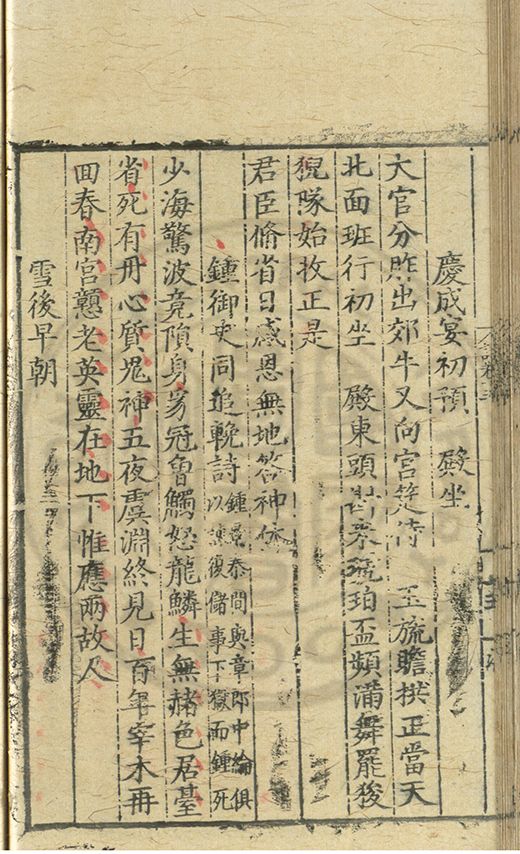 慶成宴初預　殿坐
大官分胙出郊牛又向宮筵侍　玉旒瞻拱正當天
北面班行初坐　殿東頭琥珀盃頻滿舞罷後
猊隊始收正是
君臣脩省日感恩無地答神休
鍾御史同追輓詩
鍾景泰間與章郎中綸俱
以諫復儲事下獄而鍾死
少海驚波竟隕身豸冠曾觸怒龍鱗生無赭色居臺
省死有丹心質鬼神五夜虞淵終見日百年宰木再
囬春南宮憖老英靈在地下惟應兩故人
雪後早朝